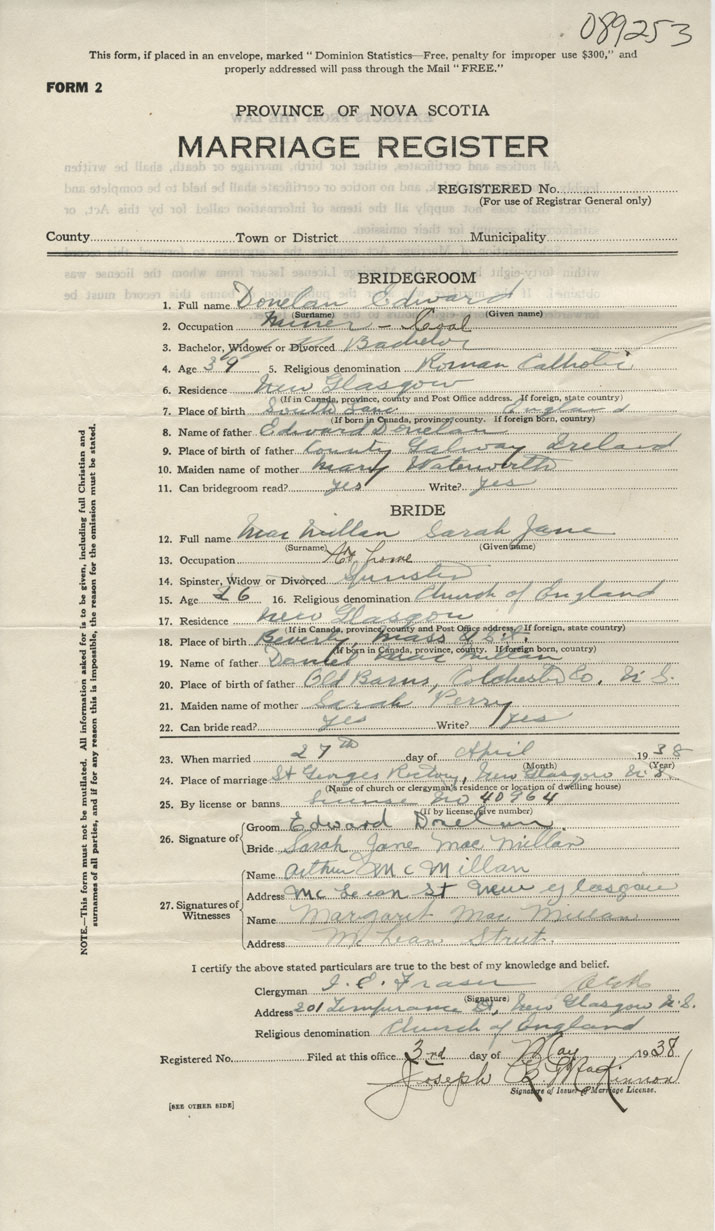 089253
This form, if placed in an envelope, marked "Dominion Statistics—Free, penalty for improper use $300," and
properly addressed will pass through the Mail "FREE."
FORM 2
PROVINCE OF NOVA SCOTIA
MARRIAGE REGISTER
REGISTERED No.
(For use of Registrar General only)
County Town or District Municipality
BRIDEGROOM
1. Full name Donelan Edward
(Surname) (Given name)
2. Occupation Miner – Coal
3. Bachelor, Widower or Divorced Bachelor
4. Age 39 5. Religious denomination Roman Catholic
6. Residence New Glasgow
(If in Canada, province, county and Post Office address. If foreign, state country)
7. Place of birth South England
(If born in Canada, province, county. If foreign born, country)
8. Name of father Edward Donelan
9. Place of birth of father County Galway Ireland
10. Maiden name of mother Mary Waterworth
11. Can bridegroom read? yes Write? yes
BRIDE
12. Full name MacMillan Sarah Jane
(Surname) (Given name)
13. Occupation At home
14. Spinster, Widow or Divorced Spinster
15. Age 26 16. Religious denomination Church of England
17. Residence New Glasgow
(If in Canada, province, county and Post Office address. If foreign, state country)
18. Place of birth Beverly, Mass U.S.A.
(If born in Canada, province, county. If foreign born, country)
19. Name of father Daniel MacMillan
20. Place of birth of father Old Barns, Colchester Co. N.S.
21. Maiden name of mother Sarah Perry
22. Can bride read? yes Write? yes
23. When married 27th day of April 1938
(Month) (Year)
24. Place of marriage St Georges Rectory, New Glasgow N.S.
(Name of church or clergyman's residence or location of dwelling house)
25. By license or banns license No 40964
(If by license, give number)
26. Signature of Groom Edward Donelan
Bride Sarah Jane MacMillan
27. Signatures of Witnesses Name Arthur McMillan
Address McLean St New Glasgow
Name Margaret MacMillan
Address McLean Street.
I certify the above stated particulars are true to the best of my knowledge and belief.
Clergyman Fraser
(Signature)
Address 201 Temperance St, New Glasgow N.S.
Religious denomination Church of England
Registered No. Filed at this office 3rd day of May 1938
Joseph MacKinnon
Signature of Issuer of Marriage License.
[SEE OTHER SIDE]
NOTE.—This form must not be mutilated. All information asked for is to be given, including full Christian and
surnames of all parties, and if for any reason this is impossible, the reason for the omission must be stated.